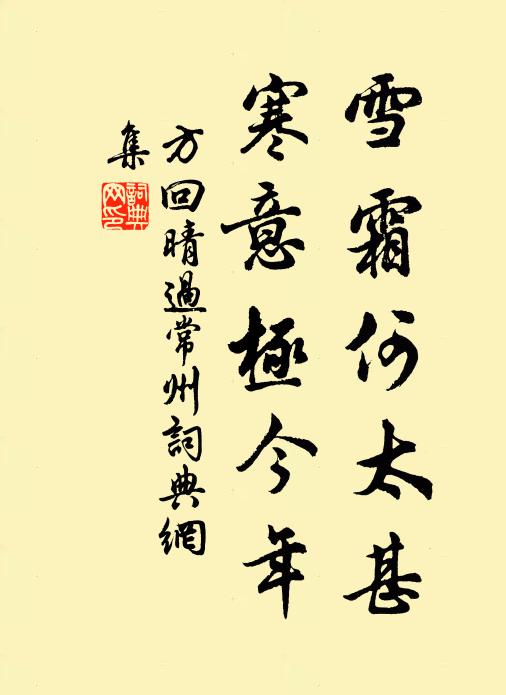 雪霜何太甚
寒意極今年
方回晴過常州詞典網
集
詞典
网印